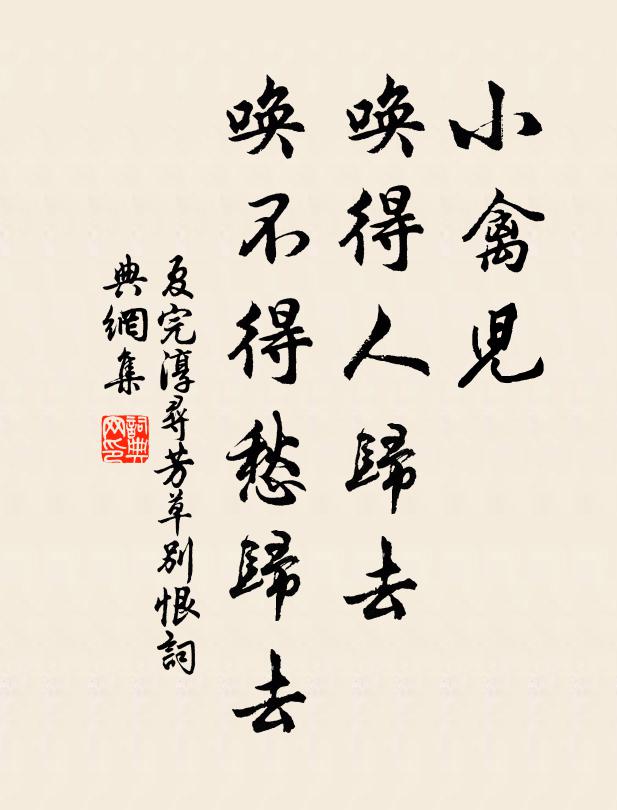 小禽児
喚得人歸去
喚不得愁歸去
夏完淳尋芳草別恨詞
典網集
詞典
网印